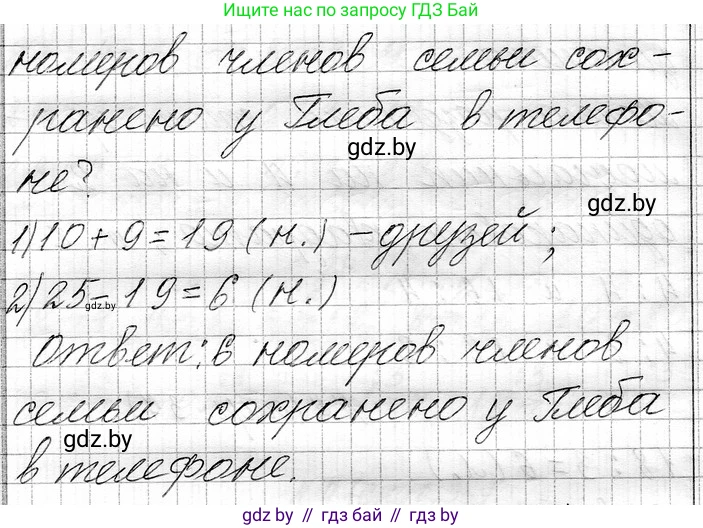 Ищите нас по запросу ГДЗ Бай
номеров членов семьи сох-
ранено у Глеба в телефо-
не?
gdz.by
gdz.by
1) 10 + 9 = 19 (н.) - друзей;
2) 25 - 19 = 6 (н.)
gdz.by
Ответ: 6 номеров членов
семьи сохранено у Глеба
gdz.by
в телефоне.
gdz.by // гдз бай // gdz.by